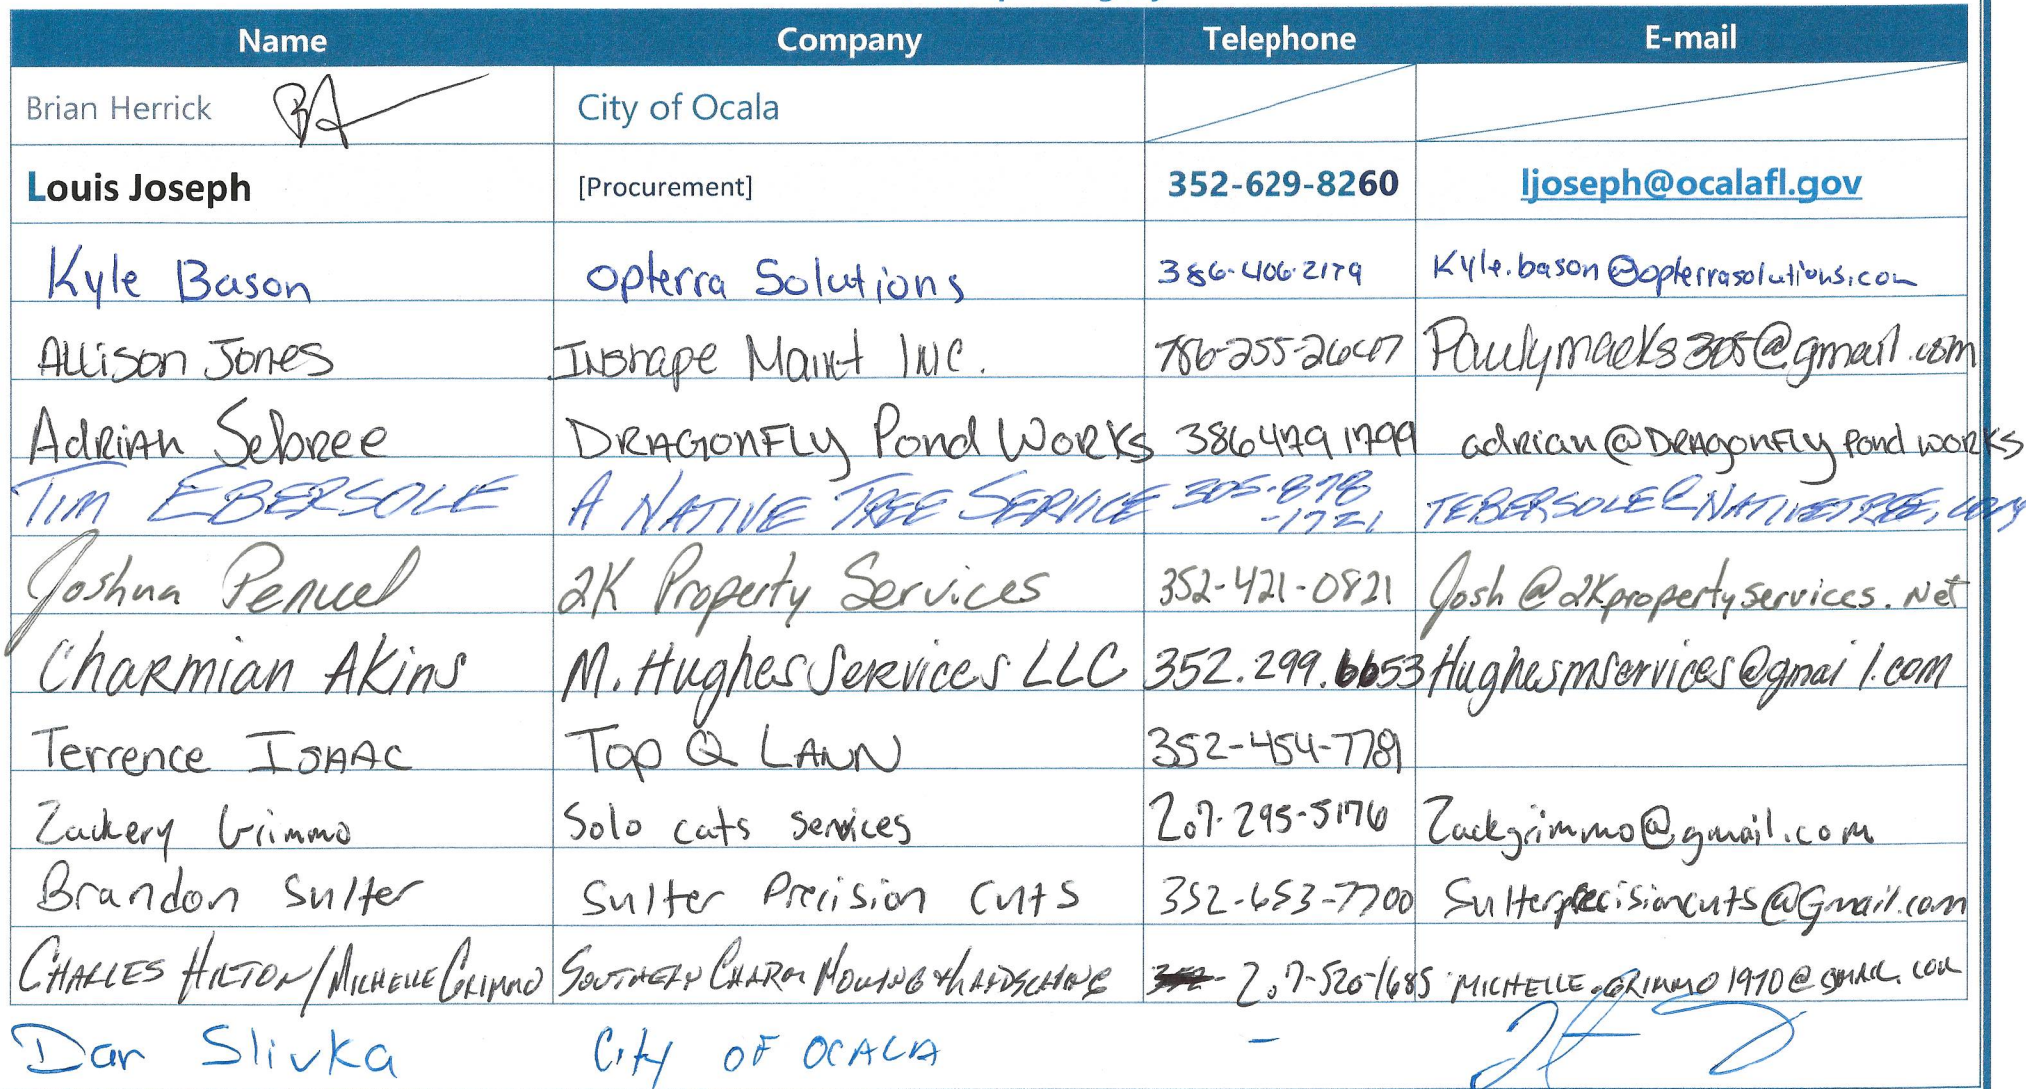 Name Company Telephone E-mail
Brian Herrick City of Ocala
Louis Joseph [Procurement] 352-629-8260 ljoseph@ocalafl.gov
Kyle Bason Opterra Solutions 386-406-2179 Kyle.bason@opterrasolutions.com
Allison Jones Inshape Maint INC. 786-255-2647 Paulymacks305@gmail.com
Adrian Sebree DRAGONFLY Pond WORKS 386 479 1799 adrian@DRAgonFly Pond WORKS
TIM EBERSOLE A NATIVE TREE SERVICE 305-878-1721 TEBERSOLE@NATIVETREE.COM
Joshua Penuel 2K Property Services 352-421-0821 Josh@2Kpropertyservices.Net
Charmian Akins M. Hughes Services LLC 352.299.6653 Hughesmservices@gmail.com
Terrence ISAAC Top Q LAWN 352-454-7781
Zackery Grimmo Solo cats services 207-295-5176 Zackgrimmo@gmail.com
Brandon Sulter Sulter Precision Cuts 352-653-7700 Sulterprecisioncuts@Gmail.com
CHARLES HILTON/MICHELLE GRIMMO SOUTHERN CHARM MOWING & LANDSCAPING 207-520-1685 MICHELLE.GRIMMO1970@GMAIL.COM
Dan Slivka City OF OCALA -